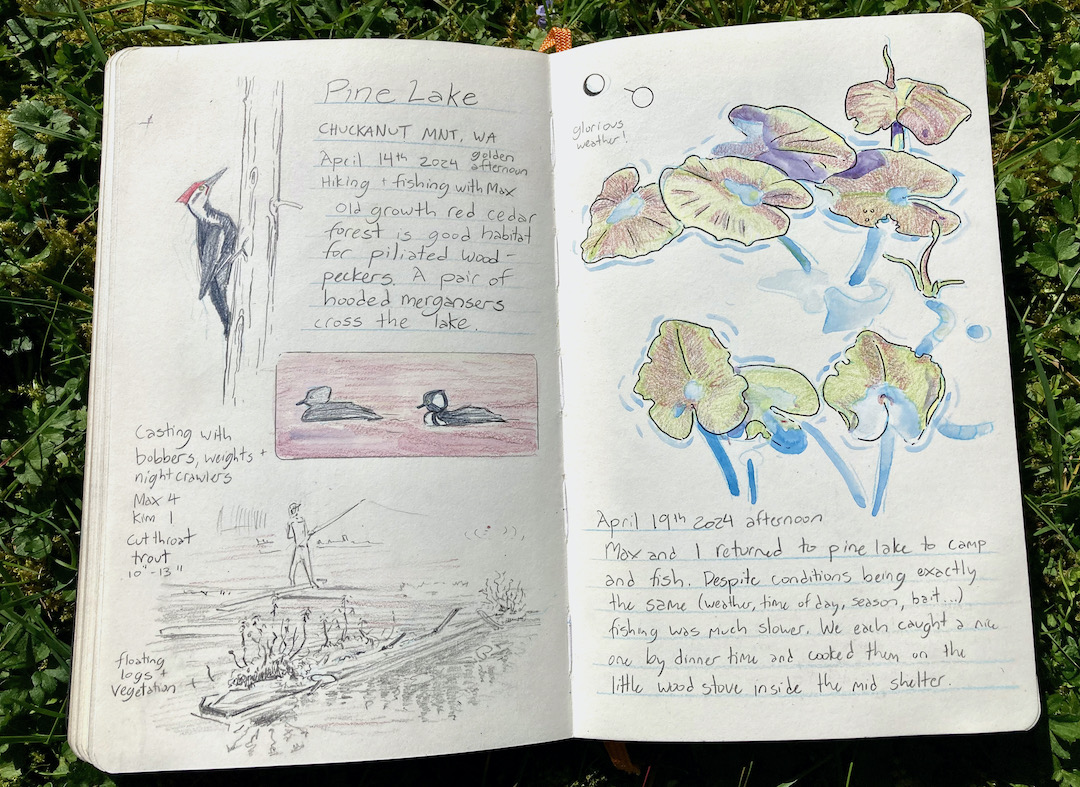 Pine Lake
CHUCKANUT MNT, WA
April 14th 2024 golden afternoon
Hiking + fishing with Max
Old growth red cedar
forest is good habitat
for piliated wood-
peckers. A pair of
hooded mergansers
cross the lake.
Casting with
bobbers, weights +
nightcrawlers
Max 4
Kim 1
cutthroat
trout
10"-13"
floating
logs +
vegetation
glorious
weather!
April 19th 2024 afternoon
Max and I returned to pine lake to camp
and fish. Despite conditions being exactly
the same (weather, time of day, season, bait...)
fishing was much slower. We each caught a nice
one by dinner time and cooked them on the
little wood stove inside the mid shelter.